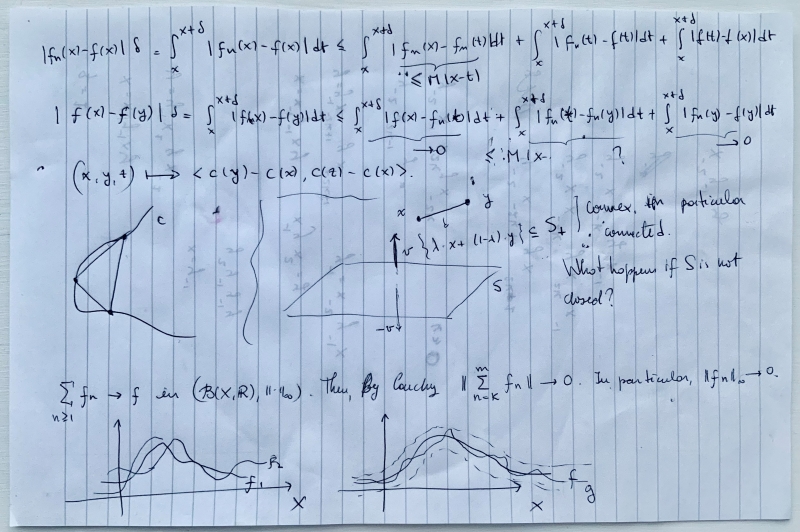 |fn(x)-f(x)| δ = ∫_x^{x+δ} |fn(x)-f(x)|dt ≤ ∫_x^{x+δ} |fn(x)-fn(t)|dt + ∫_x^{x+δ} |fn(t)-f(t)|dt + ∫_x^{x+δ} |f(t)-f(x)|dt
≤ M|x-t)
|f(x)-f(y)| δ = ∫_x^{x+δ} |f(x)-f(y)|dt ≤ ∫_x^{x+δ} |f(x)-fn(x)|dt + ∫_x^{x+δ} |fn(x)-fn(y)|dt + ∫_x^{x+δ} |fn(y)-f(y)|dt
→0 ≤ M|x- ? →0
(x,y,z) ⟼ <c(y)-c(x), c(z)-c(x)>.
c
x y
v {λ·x+(1-λ)·y} ⊆ S+
convex, in particular
connected.
S
What happens if S is not
closed?
-v
∑_{n≥1} fn → f in (B(X,R), ||·||∞). Then, by Cauchy ||∑_{n=k}^{m} fn|| → 0. In particular, ||fn||∞ → 0.
f2
f1
X
f
g
X